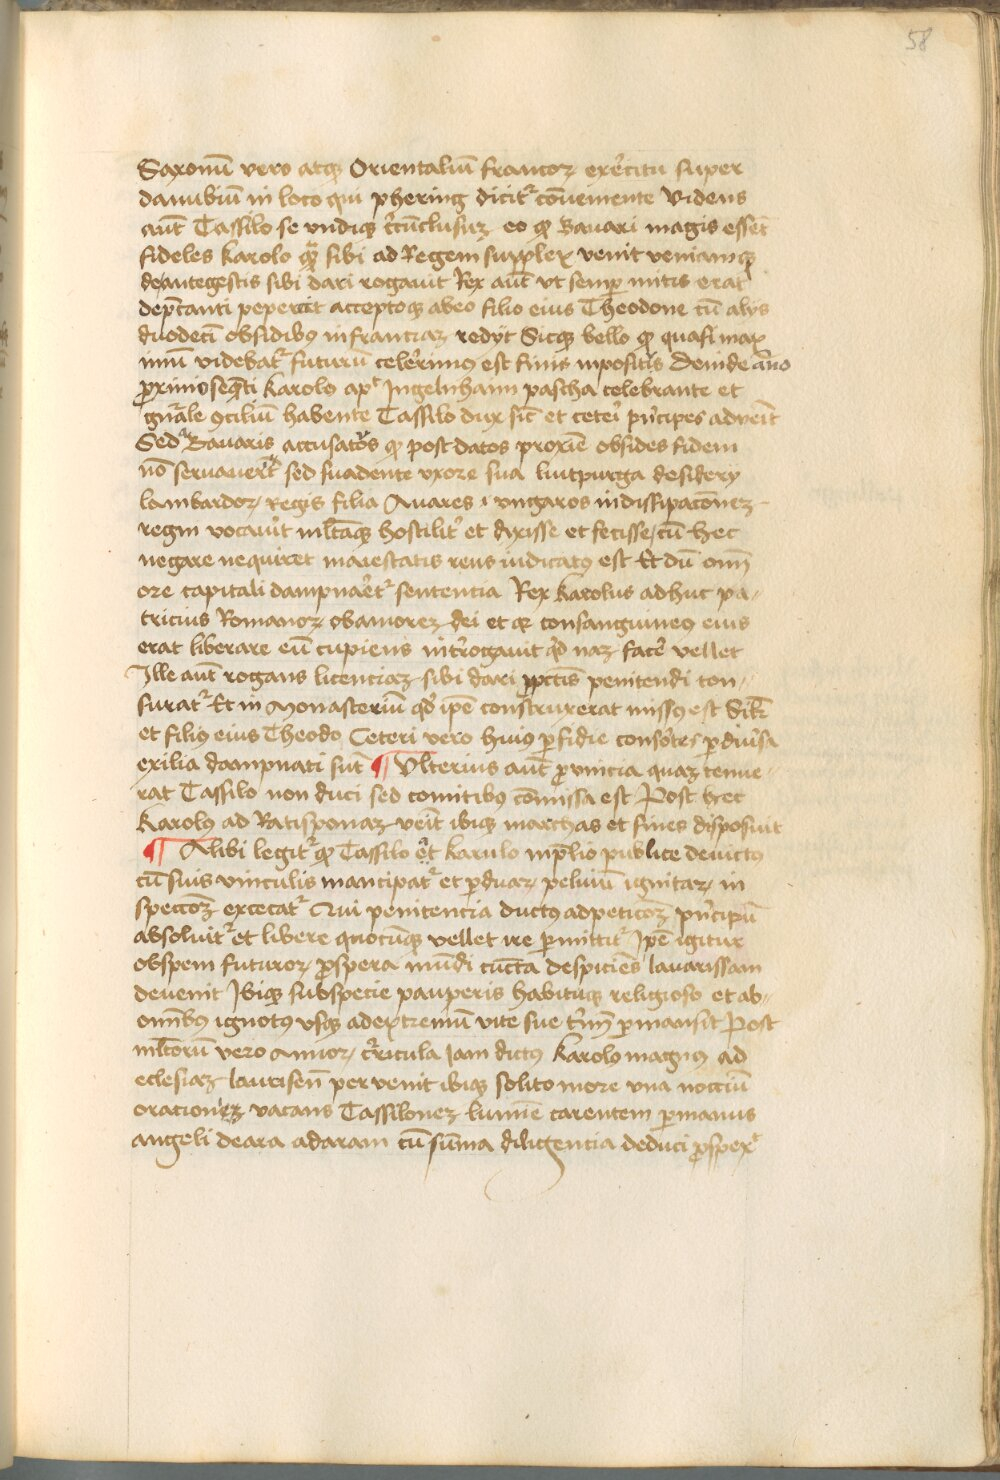 58
Saxonū vero atqꝫ Orientaliū francoꝝ exercitu super
danubiū in loco qui phering dicitʳ cōueniente Videns
aut̄ Tassilo se vndiqꝫ ꝯcūclusuꝫ eo qꝫ Bauari magis essēt
fideles karolo qꝫ sibi ad Regem supplex venit veniamqꝫ
de antegestis sibi dari rogauit Rex aut̄ vt semp̄ mitis erat
dep̄canti pepercit acceptoqꝫ ab eo filio eius Theodone cū alijs
duodecī obsidibꝰ in franciaꝫ redijt Sicqꝫ bello qꝫ quasi max
imū videbatʳ futurū celerrimꝰ est finis inpositꝰ Deinde año
proximo seqn̄ti Karolo apᵈ Ingelnhaim pascha celebrante et
gn̄ale ꝯciliū habente Tassilo dux sic̄ et ceteri pn̄cipes adveit̄
Sed a Bauaris accusatꝰ qꝫ post datos proxīe obsides fidem
nō seruauerit sed suadente vxore sua luitpurga desiderij
lambardoꝝ Regis filia Auares ꝛ vngaros in dissipacōneꝫ
regni vocauit ml̄taqꝫ hostilitʳ et dixisse et fecisse cū hec
negare nequiret maiestatis reus iudicatꝰ est Et dū omī
ore capitali dampnaretʳ sententia Rex Karolus adhuc pa-
tricius Romanoꝝ ob amoreꝫ dei et qꝫ consanguineꝰ eius
erat liberare eū cupiens int̄rogauit qd̄ naꝫ facē vellet
Ille aut̄ rogans licenciaꝫ sibi dari ꝓ pctīs penitendi ton-
suratʳ Et in Monasteriū qd̄ ip̄e construxerat missꝰ est Sil̄r
et filiꝰ eius Theodo Ceteri vero huiꝰ ꝑfidie consortes ꝑ diūsa
exilia dampnati sūt ¶ Vlterius aut̄ ꝓuincia quaꝫ tenue-
rat Tassilo non duci sed comitibꝰ cōmissa est Post hec
Karolꝰ ad Ratisponaꝫ veit̄ ibiqꝫ marchas et fines disposuit
¶ Alibi legitʳ qꝫ Tassilo et̄ karulo in p̄lio publice deuictꝰ
cū suis vinculis mancipatʳ et ꝑ duaꝝ peluiū ignitaꝝ in
speccōꝫ excecatʳ Qui penitencia ductꝰ ad peticōꝫ pn̄cipū
absoluitʳ et libere quocūqꝫ vellet ire ꝑmittitʳ Ip̄e igitur
ob spem futuroꝝ ꝓspera mūdi cūcta despiciēs lauarissam
deuenit Ibiqꝫ sub specie pauperis habituqꝫ religioso et ab-
omībꝰ ignotꝰ vsqꝫ ad extremū vite sue t̄mī ꝑmansit Post
ml̄torū vero Annoꝝ ꝯricula Iam dictꝰ Karolꝰ magnꝰ ad
eclesiaꝫ laurisen̄ per venit ibiqꝫ solito more vna noctiū
orationeꝫ vacans Tassiloneꝫ lumīe carentem ꝑ manus
angeli de ara ad aram cū sūma diligencia deduci ꝓspexᵗ